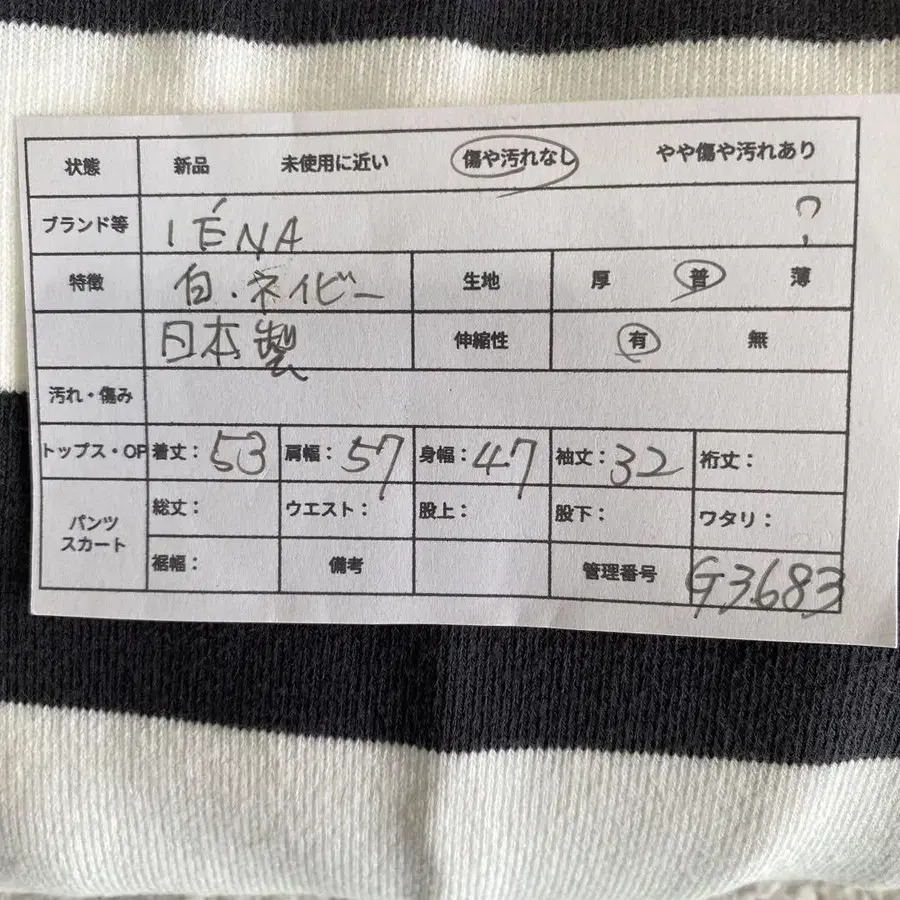 状態 新品 未使用に近い 傷や汚れなし やや傷や汚れあり
ブランド等 IÉNA
特徴 白・ネイビー 生地 厚 普 薄
日本製 伸縮性 有 無
汚れ・傷み
トップス・OP 着丈: 53 肩幅: 57 身幅: 47 袖丈: 32 裄丈:
パンツ スカート 総丈: ウエスト: 股上: 股下: ワタリ:
裾幅: 備考 管理番号 G3683